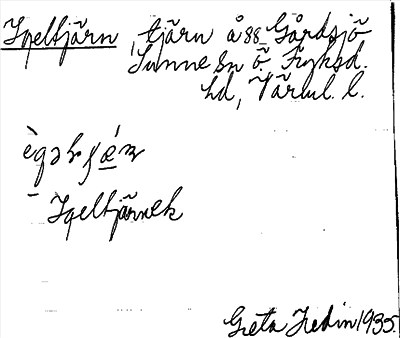 Igeltjärn tjärn å 88 Gårdsjö
Sunne sn Ö Fryksd.
hd, Värml. l.
Igeltjärnek
Greta Hedin 1935.